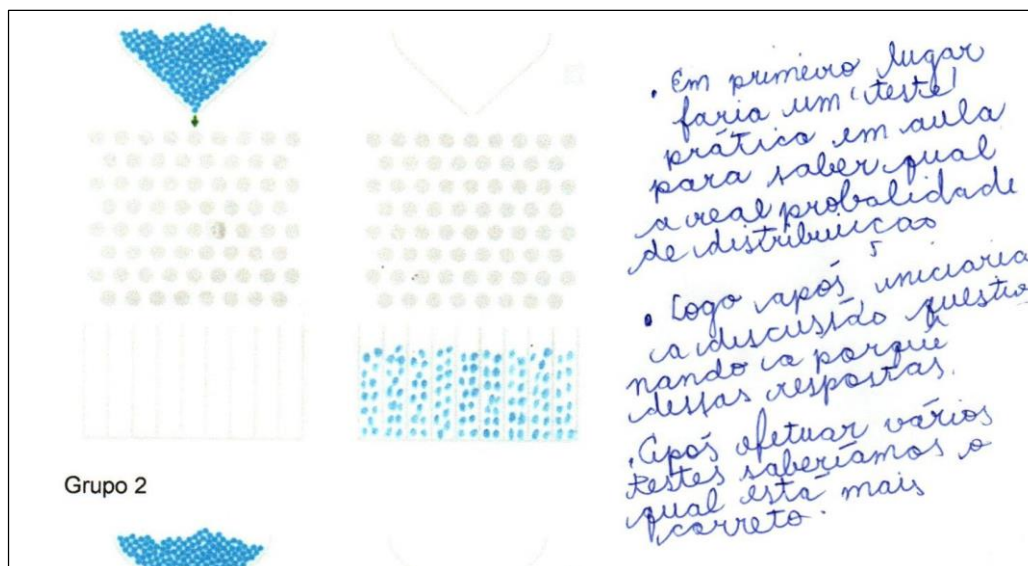 . Em primeiro lugar
faria um "teste"
prático em aula
para saber qual
a real probalidade
de distribuiçao
. Logo após iniciaria
a discussão questio
nando o porquê
dessas respostas.
. Após efetuar vários
testes saberíamos o
qual está mais
correto.
Grupo 2